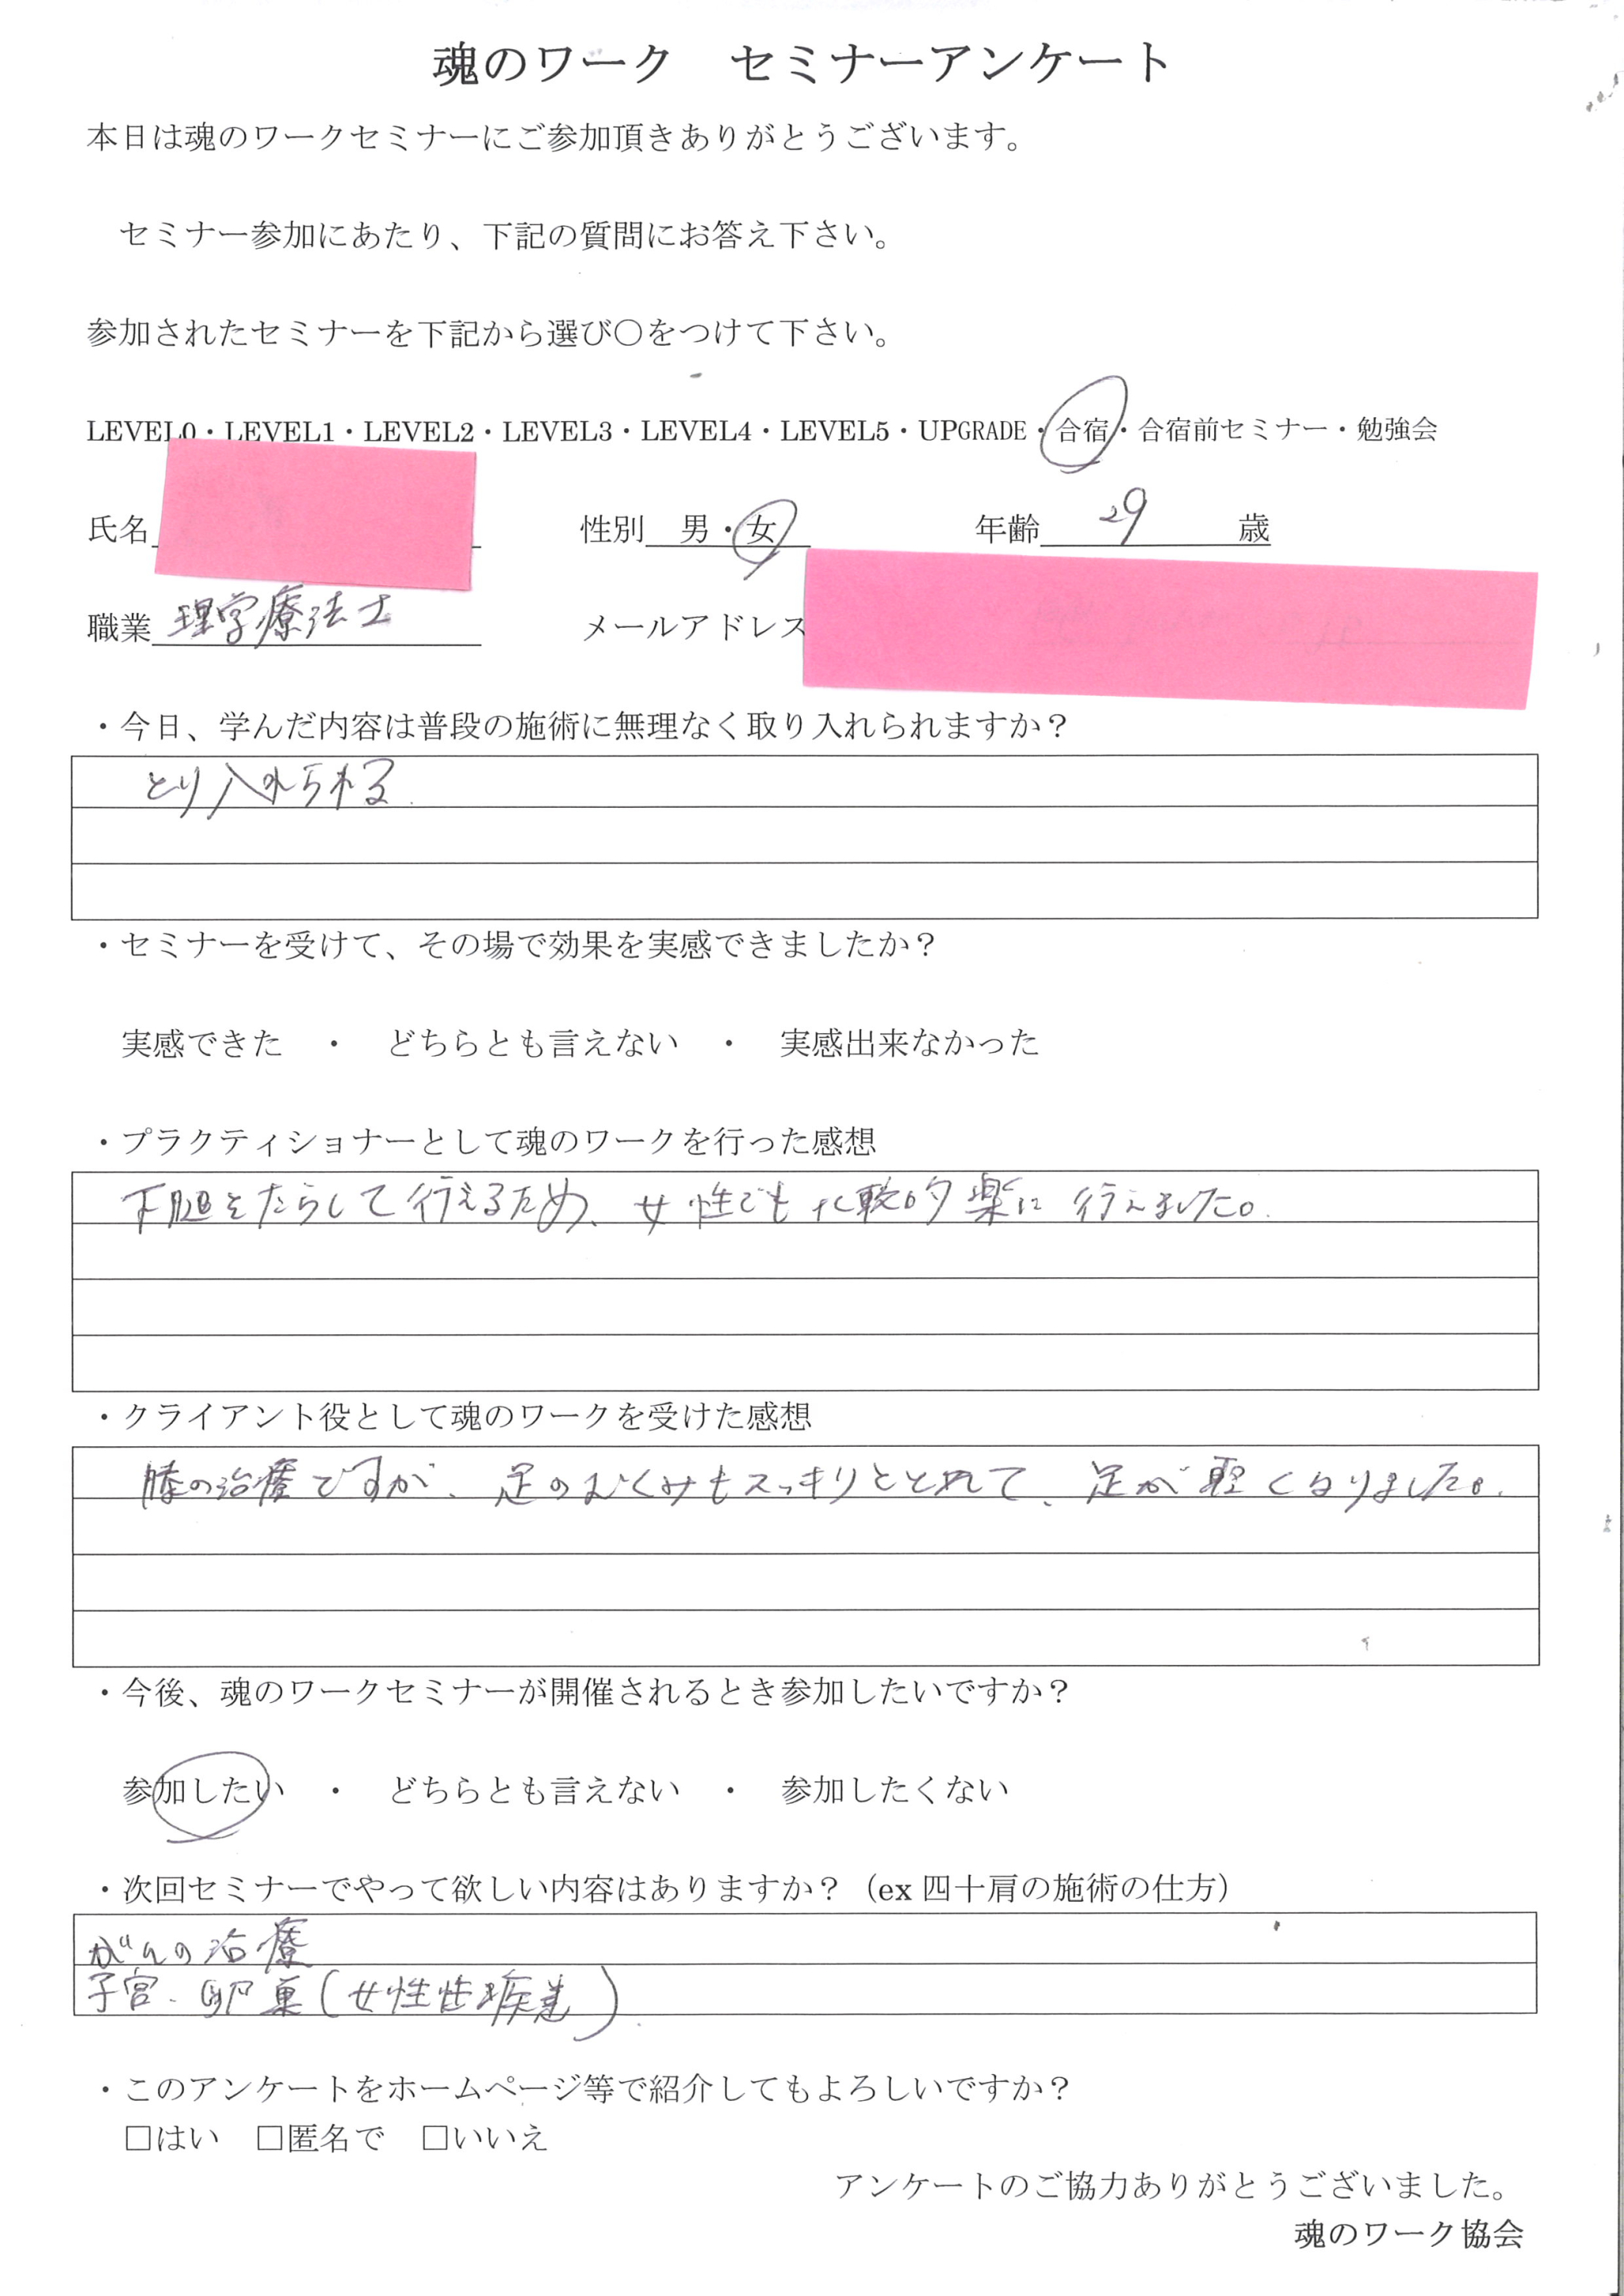 魂のワーク　セミナーアンケート
本日は魂のワークセミナーにご参加頂きありがとうございます。
セミナー参加にあたり、下記の質問にお答え下さい。
参加されたセミナーを下記から選び〇をつけて下さい。
LEVEL0・LEVEL1・LEVEL2・LEVEL3・LEVEL4・LEVEL5・UPGRADE・合宿・合宿前セミナー・勉強会
氏名　性別　男・女　年齢 29 歳
職業 理学療法士　メールアドレス
・今日、学んだ内容は普段の施術に無理なく取り入れられますか？
とり入れられる.
・セミナーを受けて、その場で効果を実感できましたか？
実感できた　・　どちらとも言えない　・　実感出来なかった
・プラクティショナーとして魂のワークを行った感想
下腿をたらして行えるため、女性でも比較的楽に行えました。
・クライアント役として魂のワークを受けた感想
膝の治療ですが、足のむくみもスッキリととれて、足が軽くなりました。
・今後、魂のワークセミナーが開催されるとき参加したいですか？
参加したい　・　どちらとも言えない　・　参加したくない
・次回セミナーでやって欲しい内容はありますか？（ex 四十肩の施術の仕方）
がんの治療
子宮、卵巣(女性性疾患)
・このアンケートをホームページ等で紹介してもよろしいですか？
□はい　□匿名で　□いいえ
アンケートのご協力ありがとうございました。
魂のワーク協会